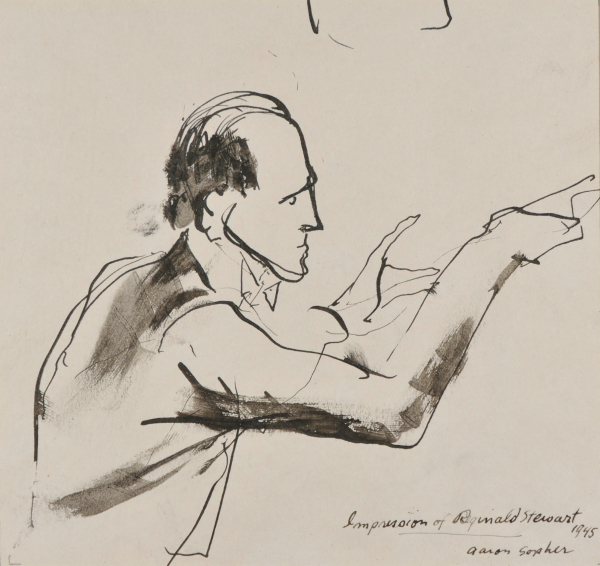 Impression of Reginald Stewart
1945
aaron sopher